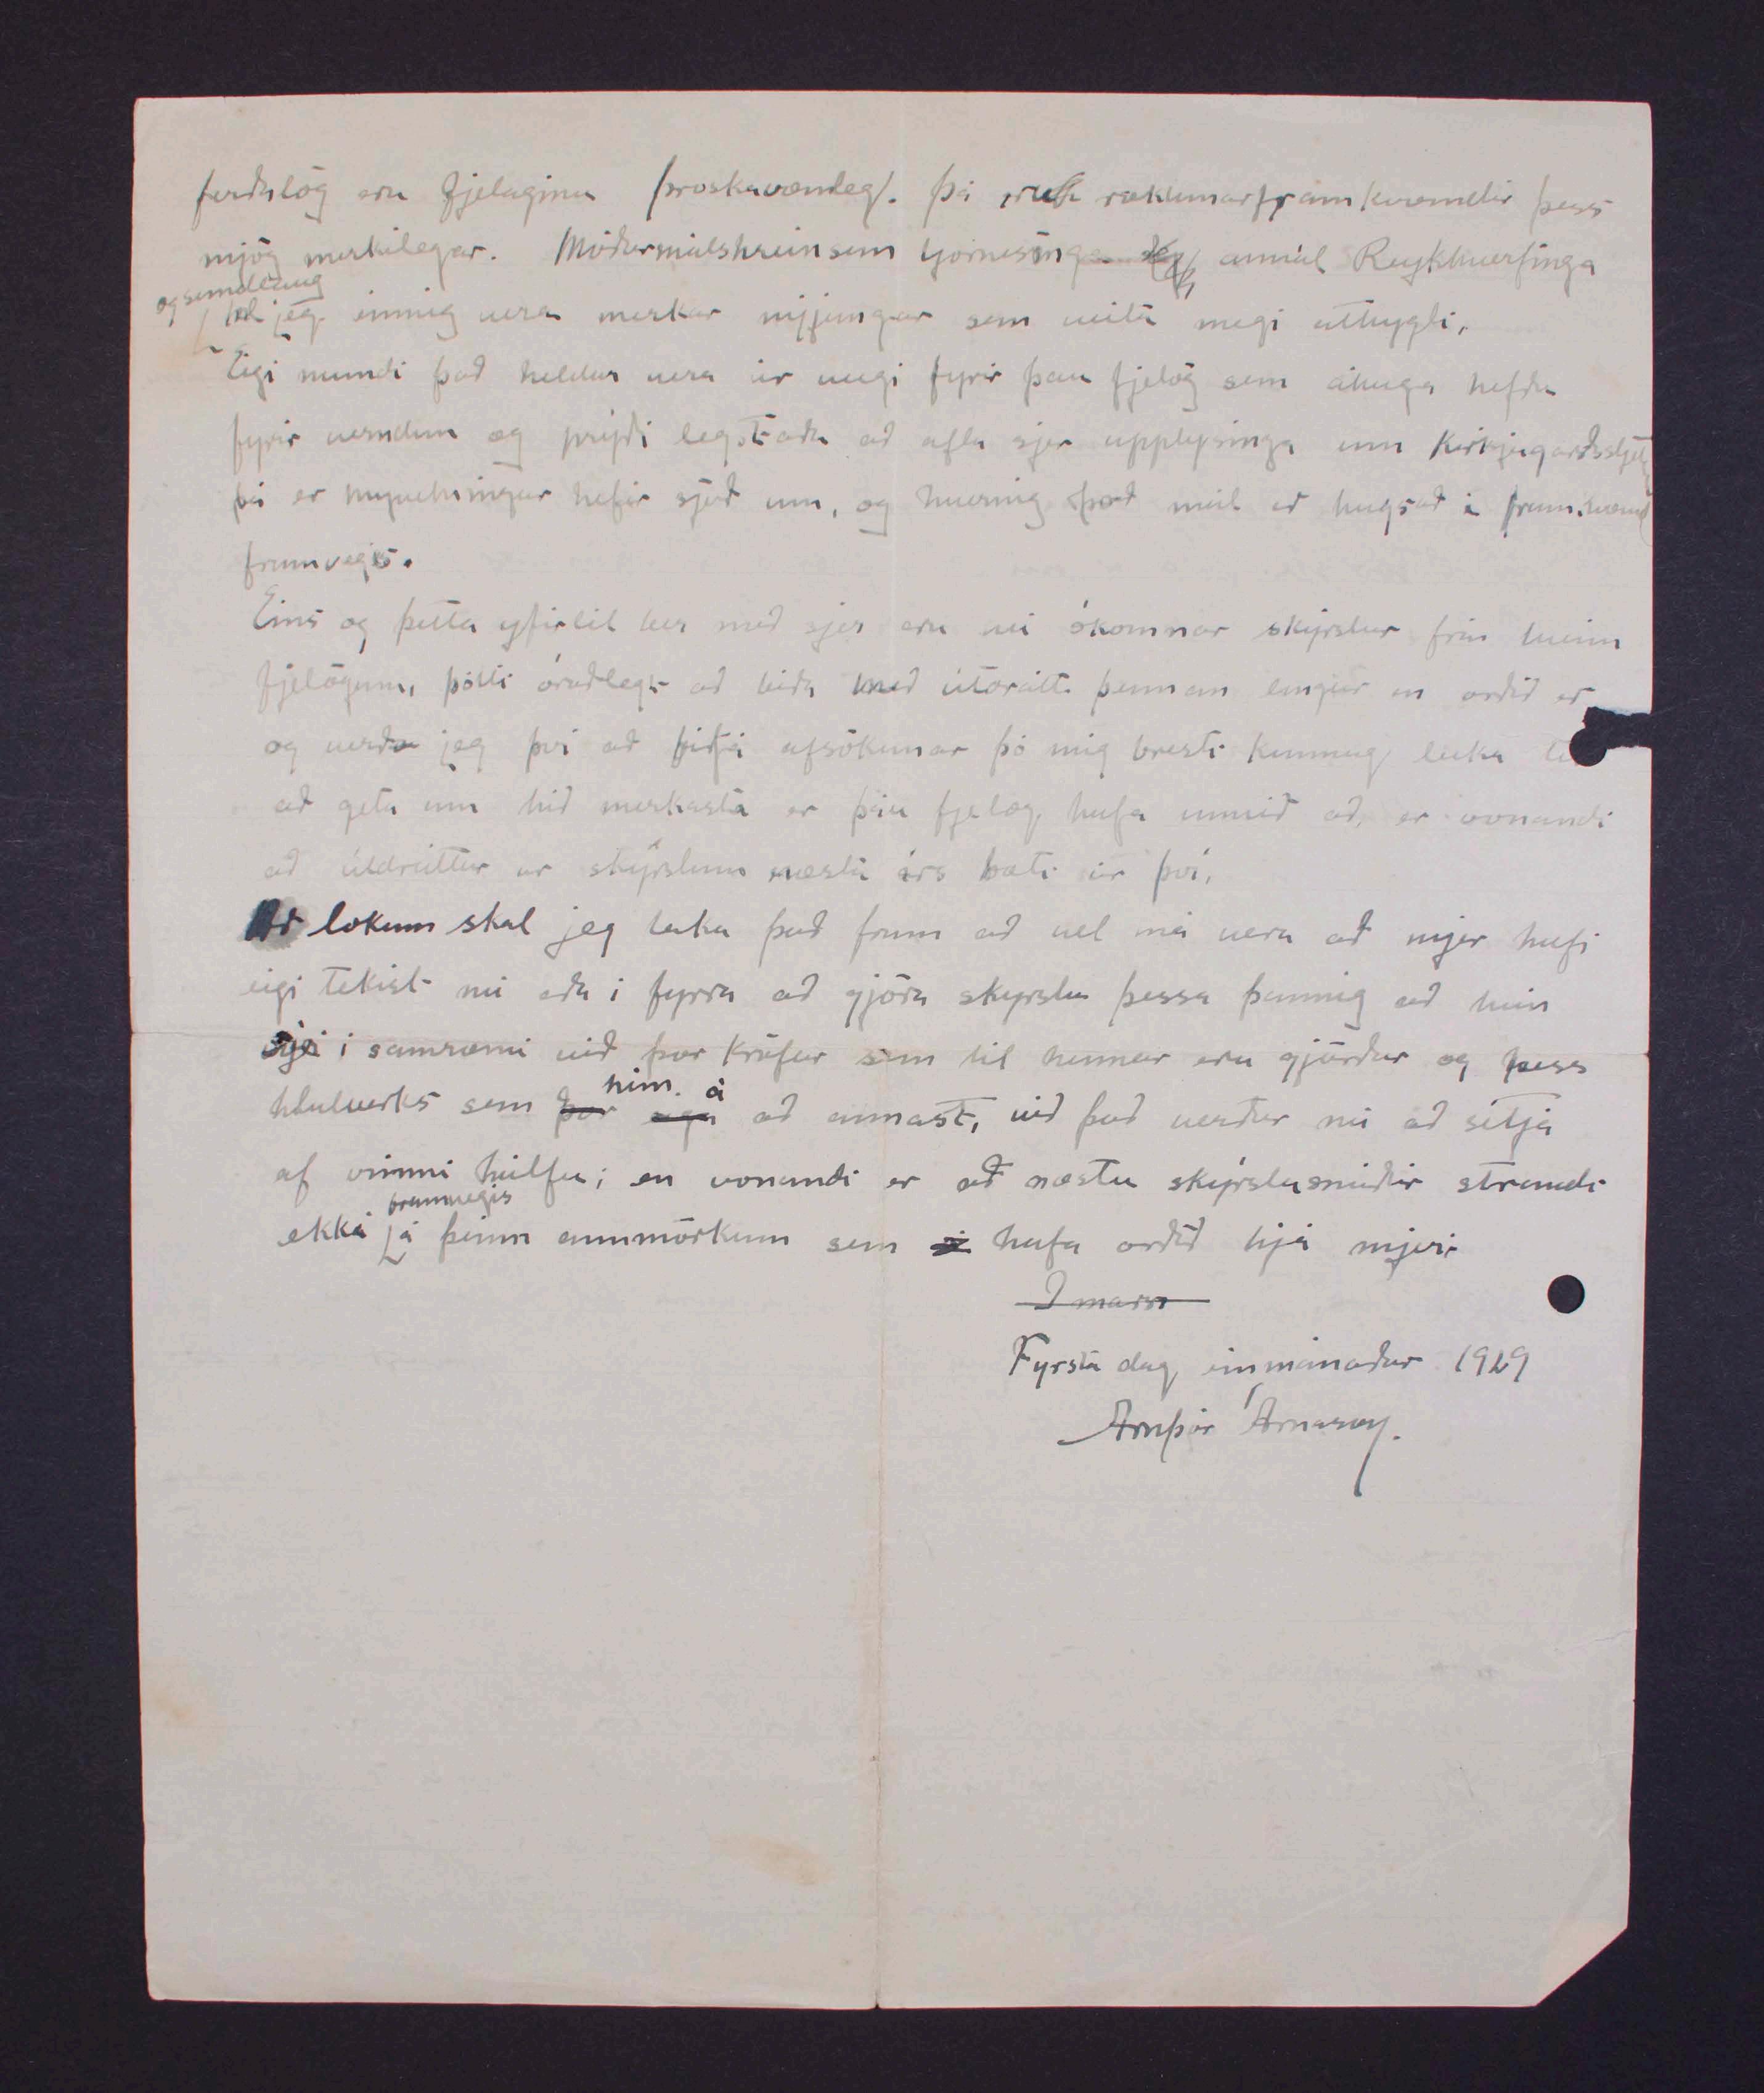 ferðalög eru fjelaginu þroskavænleg. Þá eru ræktunarframkvæmdir þess
mjög merkilegar. Móðurmálshreinsun Tjörnesinga annál Reykhverfinga
og sundlaug
tel jeg einnig vera merkar nýjungar sem veita megi athygli.
Eigi mundi það heldur vera úr vegi fyrir þau fjelög sem áhuga hefðu
fyrir verndun og prýði legstaða að afla sjer upplýsinga um kirkjugarðssljet
þá er hefir sjeð um, og hvernig það mál er hugsað i framkvæmd
framvegis.
Eins og þetta yfirlit ber með sjer eru nú ókomnar skýrslur frá
fjelögum, þótti óráðlegt að bíða með útdrátt þennan lengur en orðið er
og verð jeg því að biðja afsökunar þó mig bresti kunnugleika til
að geta um hið merkasta er þau fjelög hafa unnið að, er vonandi
að útdráttur úr skýrslum næsta árs bæti úr því.
Að lokum skal jeg taka það fram að vel má vera að mjer hafi
eigi tekist nú eða i fyrra að gjöra skýrslu þessa þannig að hún
sje i samræmi við þær kröfur sem til hennar eru gjörðar og þess
hún á
hlutverks sem þær eiga að annast, við það verður nú að sitja
af minni hálfu; en vonandi er að næstu skýrslusmiðir strandi
framvegis
ekki á þeim annmörkum sem hafa orðið hjá mjer.
I mars
Fyrsta dag einmánaðar 1929
Arnþór Árnason.